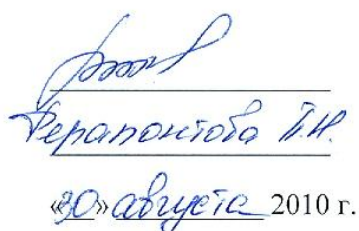 Ферапонтова Т.Н.
«30» августа 2010 г.